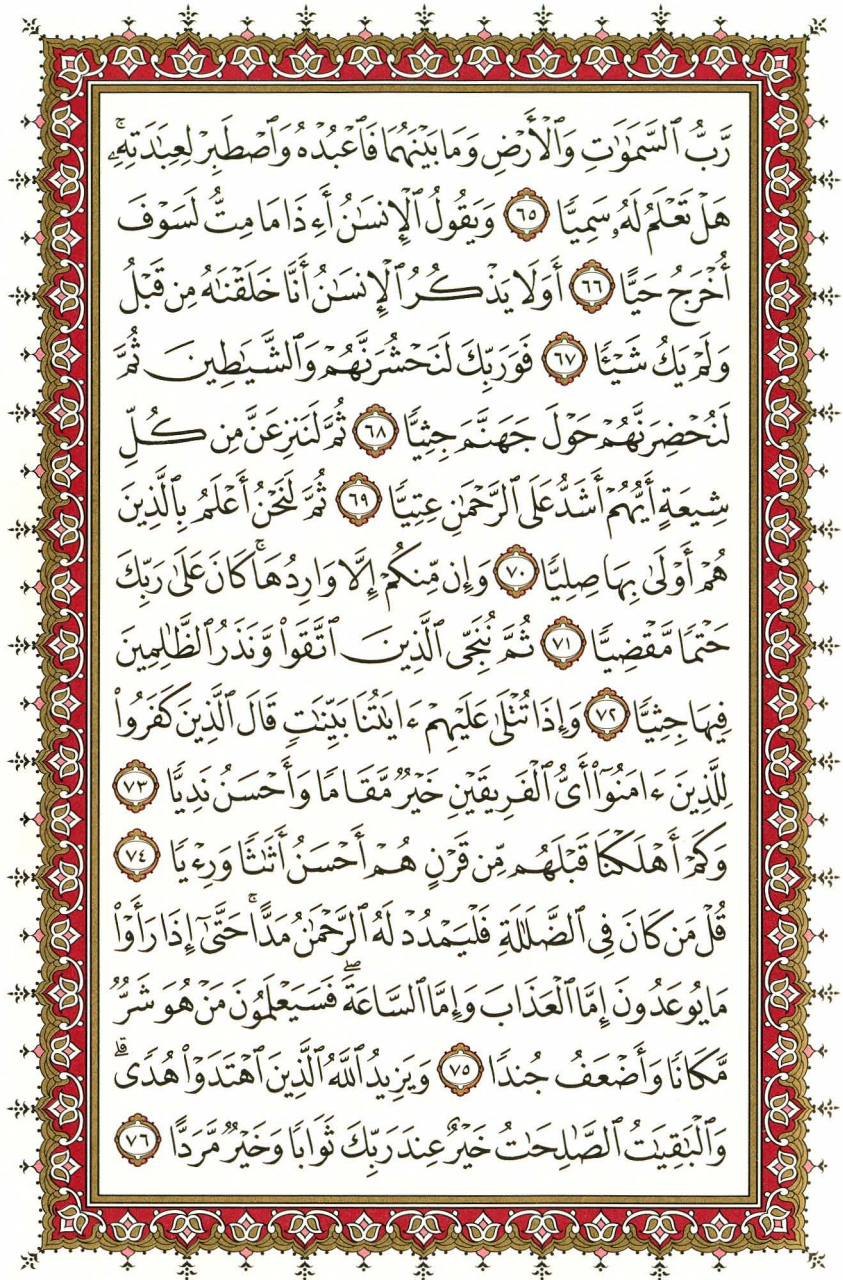 رَّبُّ ٱلسَّمَـٰوَٰتِ وَٱلْأَرْضِ وَمَا بَيْنَهُمَا فَٱعْبُدْهُ وَٱصْطَبِرْ لِعِبَـٰدَتِهِۦۚ
هَلْ تَعْلَمُ لَهُۥ سَمِيًّا ٦٥ وَيَقُولُ ٱلْإِنسَـٰنُ أَءِذَا مَا مِتُّ لَسَوْفَ
أُخْرَجُ حَيًّا ٦٦ أَوَلَا يَذْكُرُ ٱلْإِنسَـٰنُ أَنَّا خَلَقْنَـٰهُ مِن قَبْلُ
وَلَمْ يَكُ شَيْـًٔا ٦٧ فَوَرَبِّكَ لَنَحْشُرَنَّهُمْ وَٱلشَّيَـٰطِينَ ثُمَّ
لَنُحْضِرَنَّهُمْ حَوْلَ جَهَنَّمَ جِثِيًّا ٦٨ ثُمَّ لَنَنزِعَنَّ مِن كُلِّ
شِيعَةٍ أَيُّهُمْ أَشَدُّ عَلَى ٱلرَّحْمَـٰنِ عِتِيًّا ٦٩ ثُمَّ لَنَحْنُ أَعْلَمُ بِٱلَّذِينَ
هُمْ أَوْلَىٰ بِهَا صِلِيًّا ٧٠ وَإِن مِّنكُمْ إِلَّا وَارِدُهَاۚ كَانَ عَلَىٰ رَبِّكَ
حَتْمًا مَّقْضِيًّا ٧١ ثُمَّ نُنَجِّى ٱلَّذِينَ ٱتَّقَوا۟ وَّنَذَرُ ٱلظَّـٰلِمِينَ
فِيهَا جِثِيًّا ٧٢ وَإِذَا تُتْلَىٰ عَلَيْهِمْ ءَايَـٰتُنَا بَيِّنَـٰتٍ قَالَ ٱلَّذِينَ كَفَرُوا۟
لِلَّذِينَ ءَامَنُوٓا۟ أَىُّ ٱلْفَرِيقَيْنِ خَيْرٌ مَّقَامًا وَأَحْسَنُ نَدِيًّا ٧٣
وَكَمْ أَهْلَكْنَا قَبْلَهُم مِّن قَرْنٍ هُمْ أَحْسَنُ أَثَـٰثًا وَرِءْيًا ٧٤
قُلْ مَن كَانَ فِى ٱلضَّلَـٰلَةِ فَلْيَمْدُدْ لَهُ ٱلرَّحْمَـٰنُ مَدًّاۚ حَتَّىٰٓ إِذَا رَأَوْا۟
مَا يُوعَدُونَ إِمَّا ٱلْعَذَابَ وَإِمَّا ٱلسَّاعَةَۖ فَسَيَعْلَمُونَ مَنْ هُوَ شَرٌّ
مَّكَانًا وَأَضْعَفُ جُندًا ٧٥ وَيَزِيدُ ٱللَّهُ ٱلَّذِينَ ٱهْتَدَوْا۟ هُدًىۗ
وَٱلْبَـٰقِيَـٰتُ ٱلصَّـٰلِحَـٰتُ خَيْرٌ عِندَ رَبِّكَ ثَوَابًا وَخَيْرٌ مَّرَدًّا ٧٦